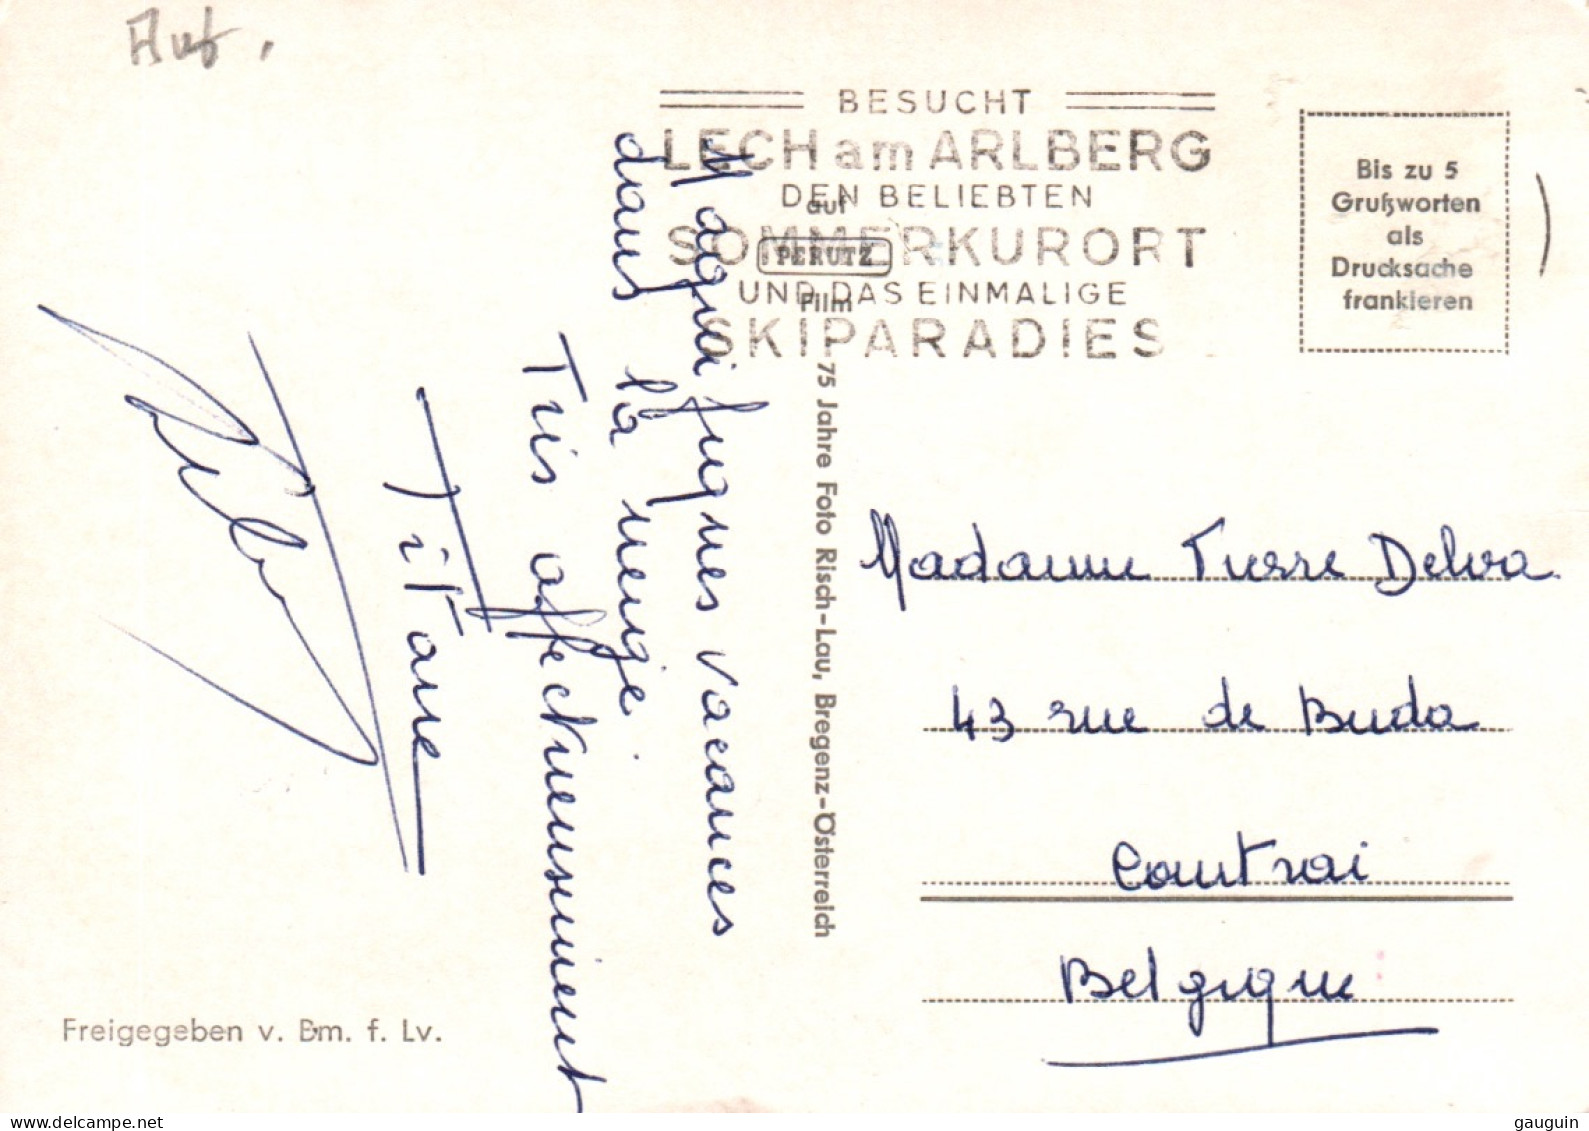 Aut.
BESUCHT
LECH am ARLBERG
DEN BELIEBTEN
SOMMERKURORT
UND DAS EINMALIGE
SKIPARADIES
auf
PERUTZ
Film
Bis zu 5
Grußworten
als
Drucksache
frankieren
Magnifiques vacances
dans la neige
Très affectueusement
75 Jahre Foto Risch-Lau, Bregenz-Österreich
Madame Pierre Delva
43 rue de Buda
Courtrai
Belgique
Freigegeben v. Bm. f. Lv.
www.delcampe.net
gauguin